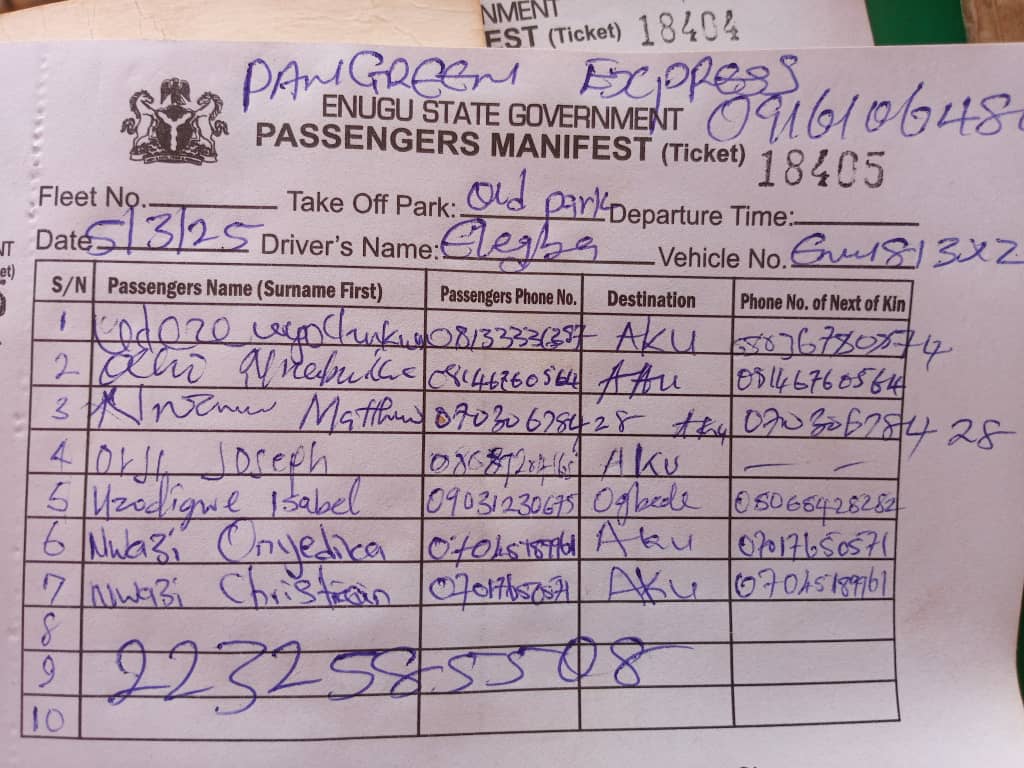 NMENT
EST (Ticket) 18404
PAMGREEN EXPRESS
ENUGU STATE GOVERNMENT 091610648
PASSENGERS MANIFEST (Ticket) 18405
Fleet No. Take Off Park: Old park Departure Time:
Date 5/3/25 Driver's Name: Elegba Vehicle No.
S/N Passengers Name (Surname First) Passengers Phone No. Destination Phone No. of Next of Kin
1 AKU
2 08146760564 AKu 08146760564
3 Matthew 07030678428 Aku 07030678428
4 Orji Joseph AKU — —
5 Uzodigwe Isabel 09031230675 Ogbede 08065428282
6 Nwazi Onyedika 07045189961 Aku 07017650571
7 Nwazi Christian 07017650571 AKU 07045189961
8
9 223258-5508
10